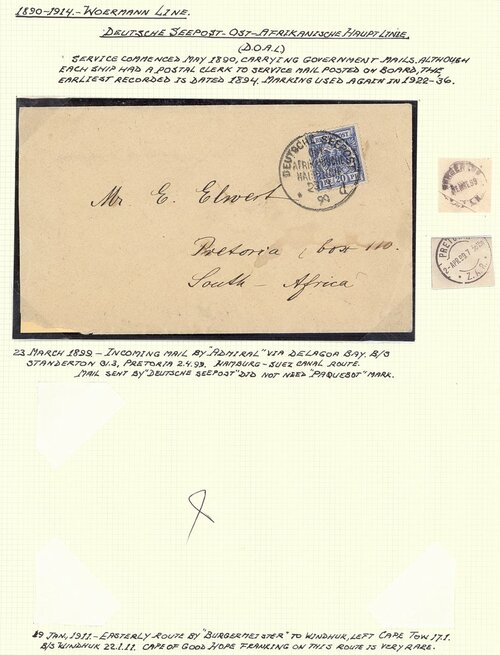 1890-1914.- WOERMANN LINE.
DEUTSCHE SEEPOST-OST-AFRIKANISCHE HAUPTLINIE.
(D.O.A.L)
SERVICE COMMENCED MAY 1890, CARRYING GOVERNMENT MAILS. ALTHOUGH
EACH SHIP HAD A POSTAL CLERK TO SERVICE MAIL POSTED ON BOARD, THE
EARLIEST RECORDED IS DATED 1894. MARKING USED AGAIN IN 1922-36.
DEUTSCHE SEEPOST
OST
AFRIKANISCHE
HAUPTLINIE
d
99
Mr. E. Elwert
Pretoria (box 110.
South-Africa
PRETO
2-APR.99.7
Z.A.R.
23 MARCH 1899.- INCOMING MAIL BY "ADMIRAL" VIA DELAGOA BAY. B/S
STANDERTON 31.3, PRETORIA 2.4.99. HAMBURG-SUEZ CANAL ROUTE.
MAIL SENT BY "DEUTSCHE SEEPOST" DID NOT NEED "PAQUEBOT" MARK.
19 JAN, 1911.- EASTERLY ROUTE BY "BURGERMEISTER" TO WINDHUK, LEFT CAPE TOW 17.1.
B/S WINDHUK 22.1.11. CAPE OF GOOD HOPE FRANKING ON THIS ROUTE IS VERY RARE.